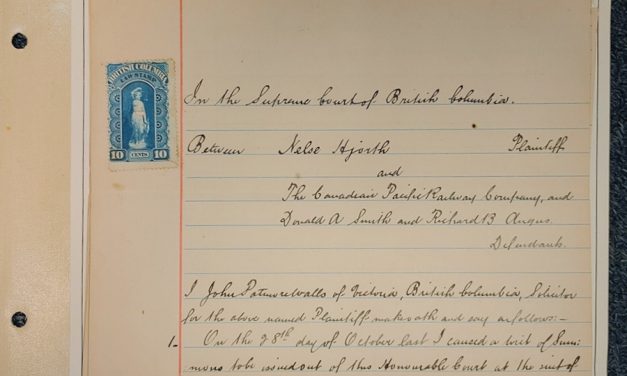 BRITISH COLUMBIA
LAW STAMP
10 CENTS 10
In the Supreme Court of British Columbia.
Between Nelse Hjorth Plaintiff
and
The Canadian Pacific Railway Company, and
Donald A Smith and Richard B Angus
Defendants.
I John Patmore Walls of Victoria, British Columbia, Solicitor
for the above named Plaintiff make oath and say as follows:-
1- On the 28th day of October last I caused a writ of Sum-
mons to be issued out of this Honourable Court at the suit of